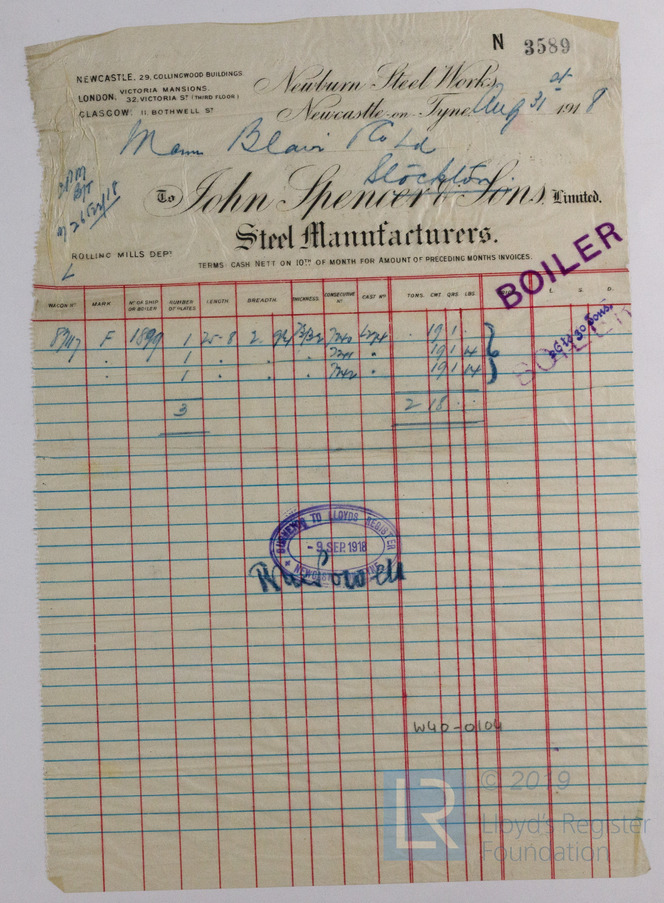 N 3589
NEWCASTLE. 29, COLLINGWOOD BUILDINGS
LONDON, VICTORIA MANSIONS,
32, VICTORIA ST (THIRD FLOOR)
GLASGOW: 11, BOTHWELL ST
Newburn Steel Works,
Newcastle-on-Tyne, Aug 31st 1918
Blair & Co Ld
Stockton
To John Spencer & Sons, Limited.
Steel Manufacturers.
ROLLING MILLS DEPT
TERMS: CASH NETT ON 10TH OF MONTH FOR AMOUNT OF PRECEDING MONTHS INVOICES.
BOILER
WAGON No MARK No OF SHIP OR BOILER NUMBER OF PLATES LENGTH BREADTH. THICKNESS. CONSECUTIVE No CAST No TONS. CWT QRS LBS. £. S. D.
F 1899 1 25-8 19 1 ·
· · 1 · · · 19 1 14
· · 1 · · · 19 1 14
3 2 18 · ·
BOILER
SURVEYOR TO LLOYDS REGISTER
- 9 SEP. 1918
W40-0104
LR
© 2019
Lloyd's Register
Foundation